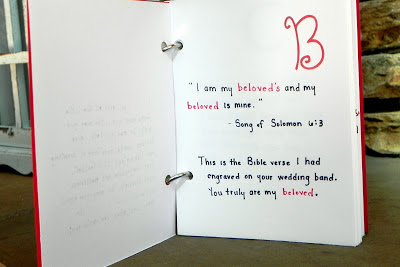 B
"I am my beloved's and my
beloved is mine."
- Song of Solomon 6:3
This is the Bible verse I had
engraved on your wedding band.
You truly are my beloved.